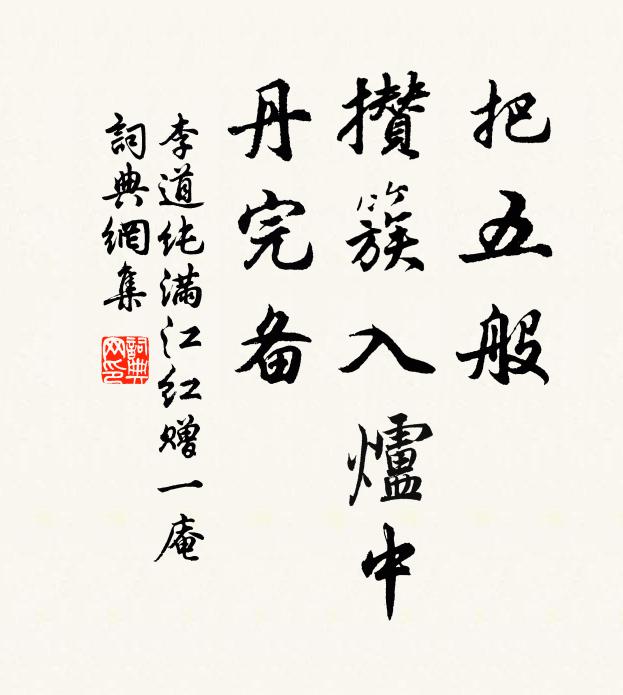 把五般
攢簇入爐中
丹完备
李道纯滿江红赠一庵
詞典網集
詞典
网印